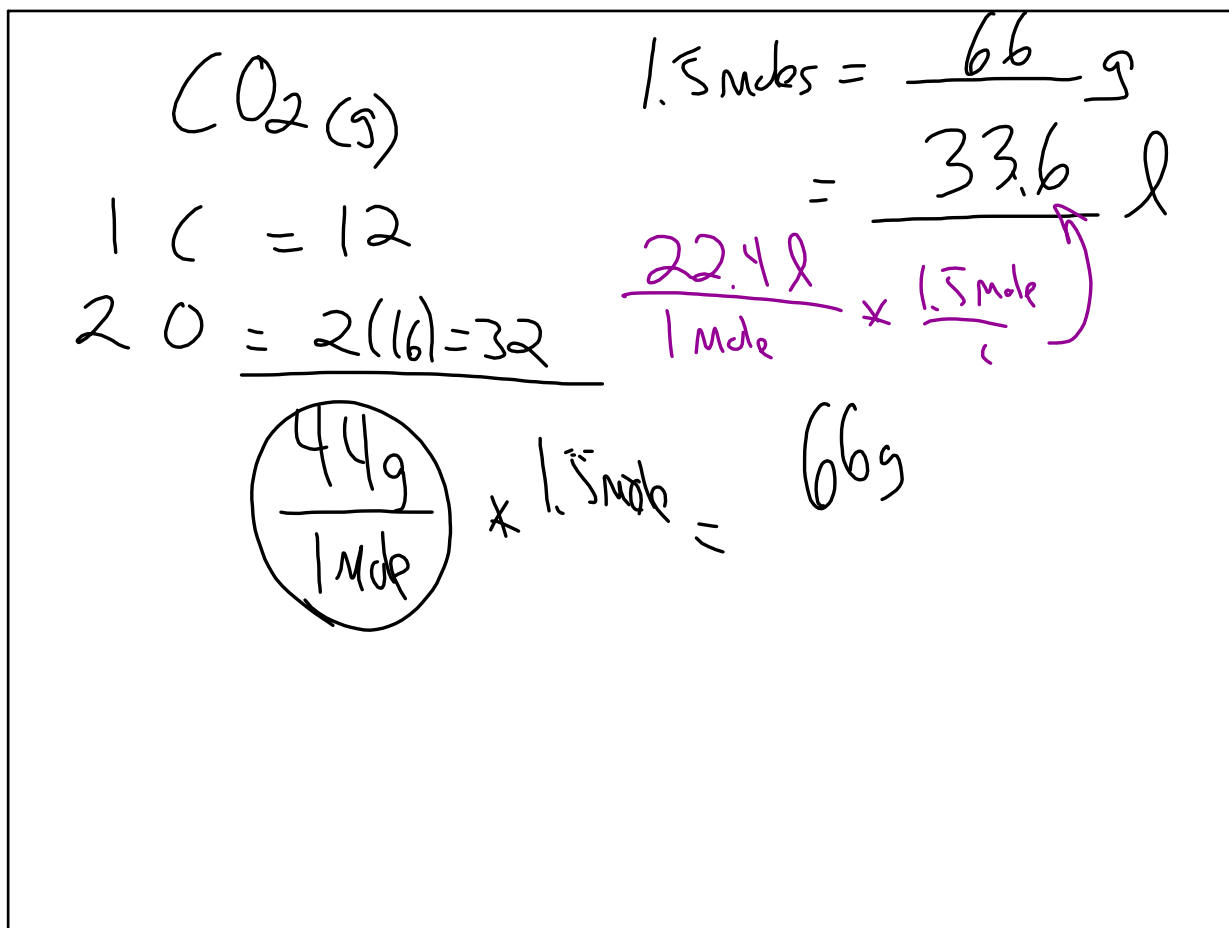 CO₂ (g)
1 C = 12
2 O = 2(16) = 32
44g
1 Mole
* 1.5 mole =
66g
1.5 moles = 66 g
= 33.6 l
22.4 l
1 Mole
* 1.5 Mole